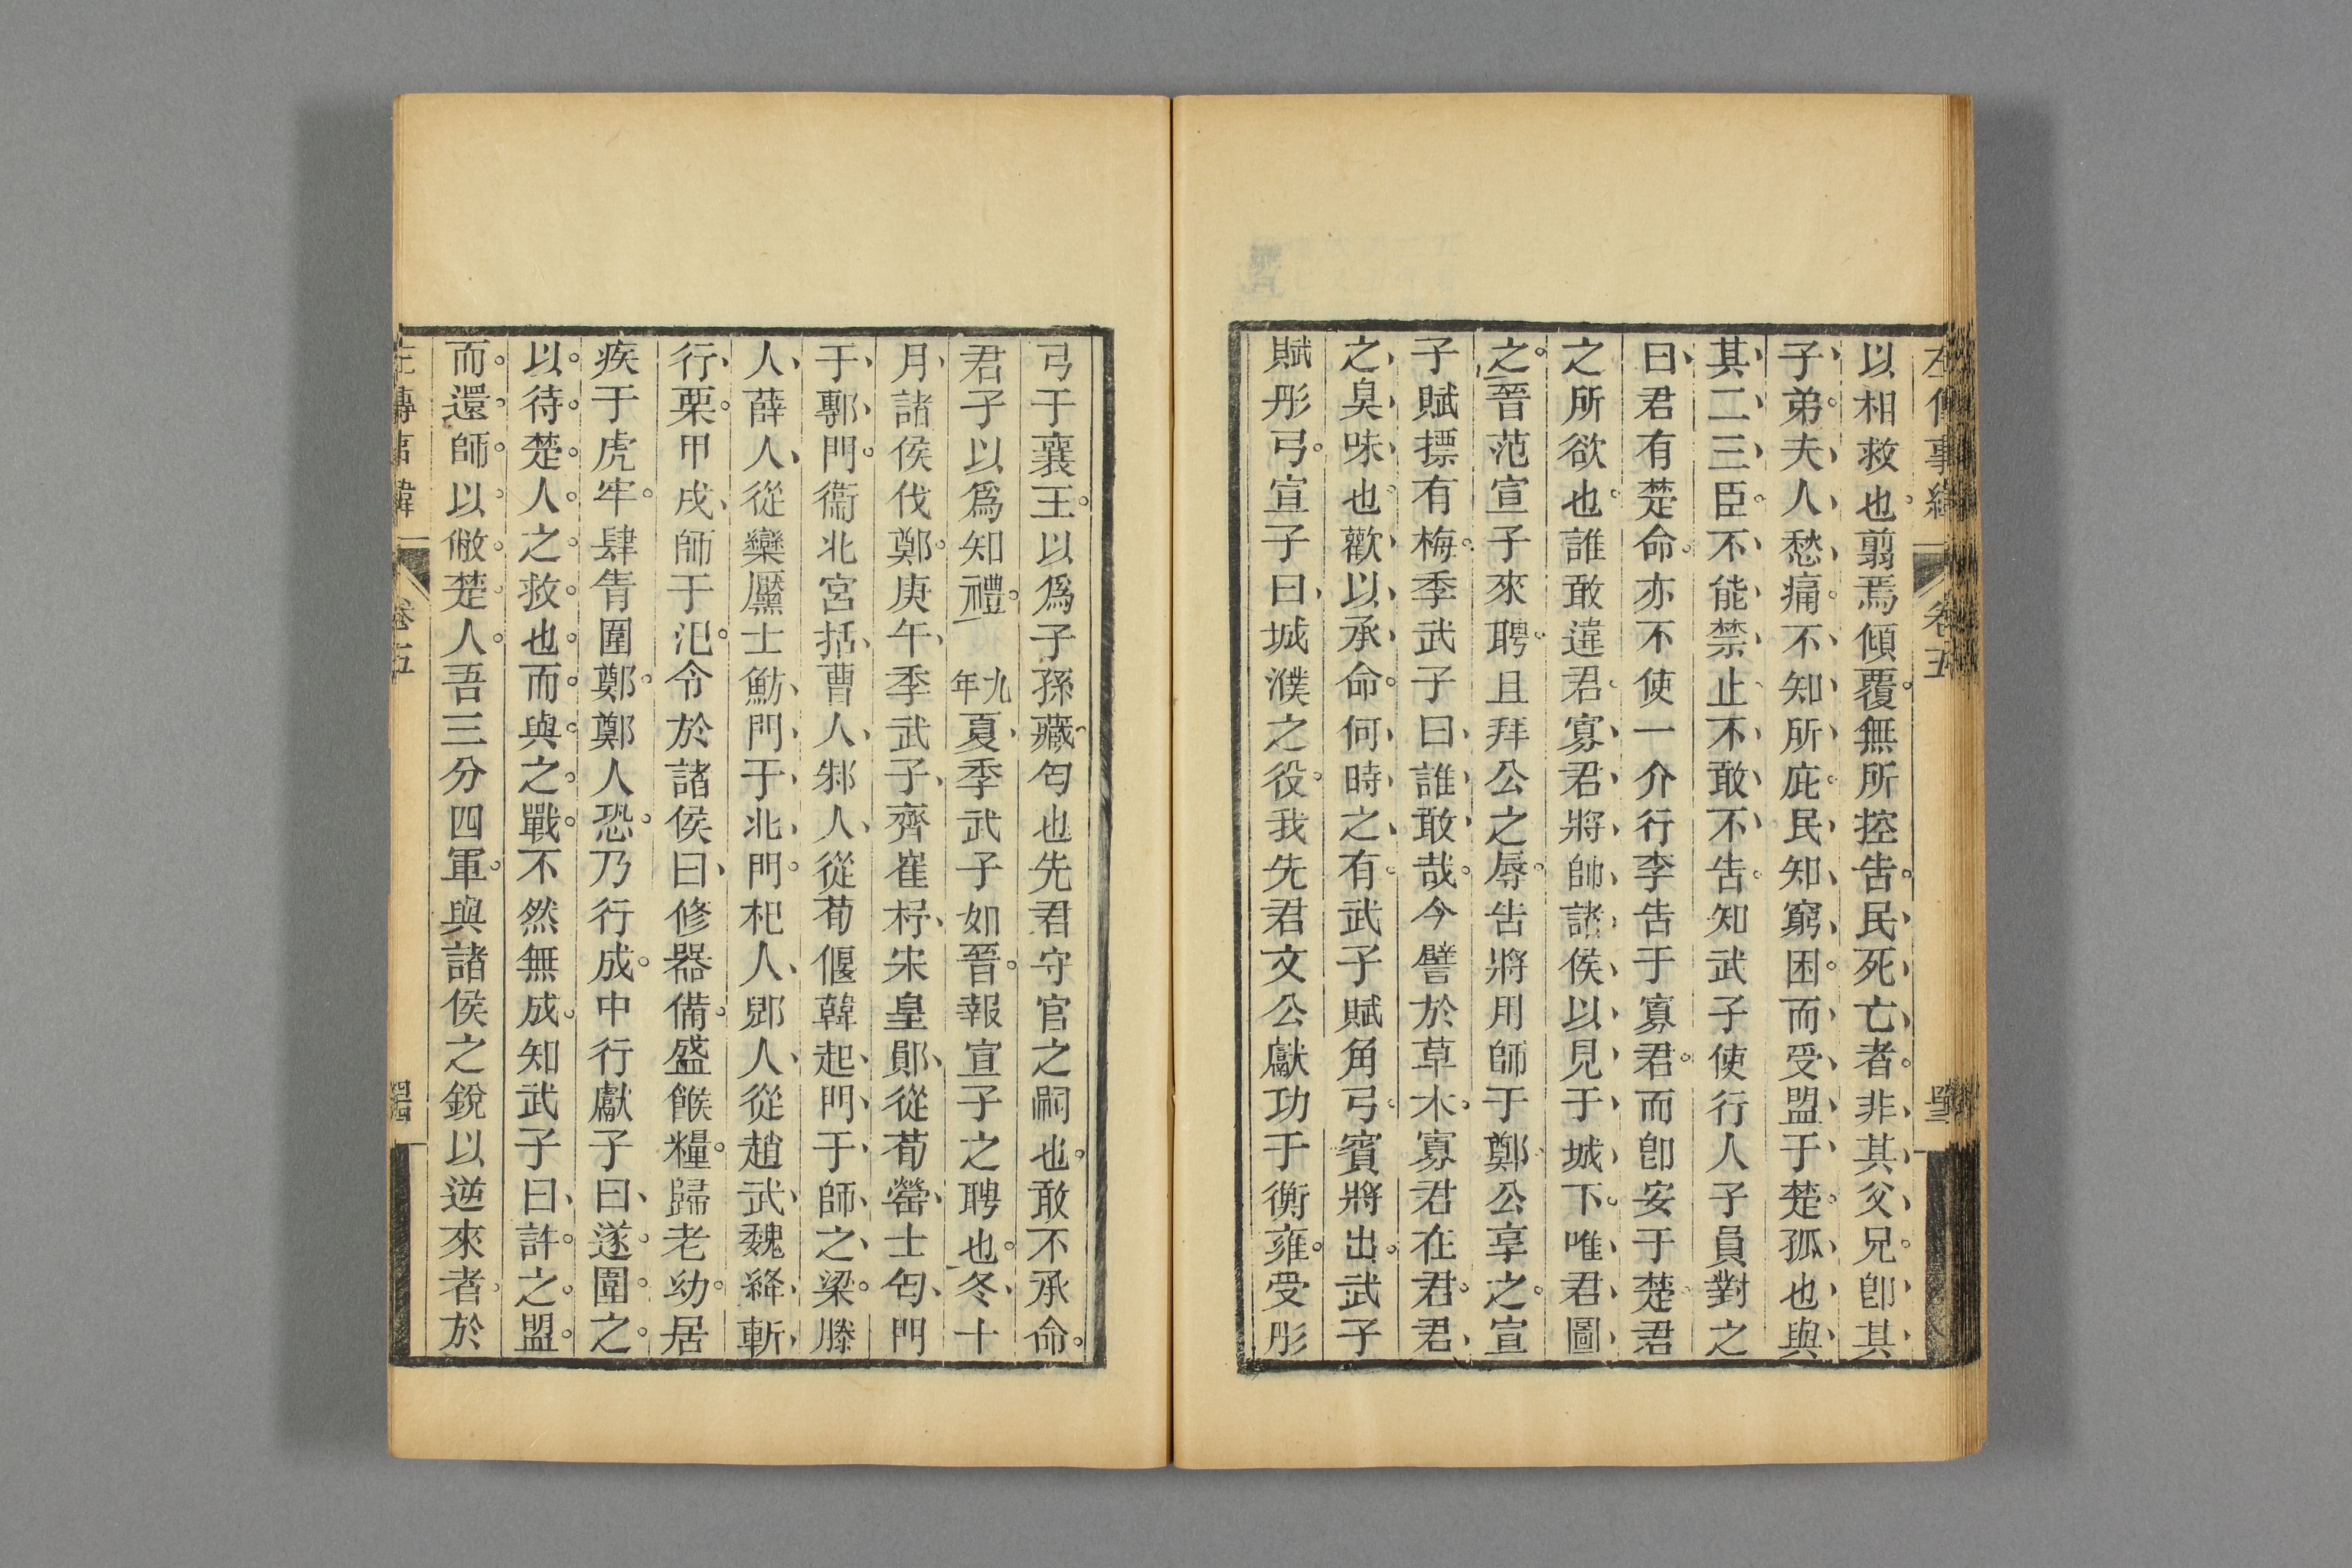 左傳事緯 卷五
以相救也翦焉傾覆無所控告民死亡者非其父兄卽其
子弟夫人愁痛不知所庇民知窮困而受盟于楚孤也與
其二三臣不能禁止不敢不告知武子使行人子員對之
曰君有楚命亦不使一介行李告于寡君而卽安于楚君
之所欲也誰敢違君寡君將帥諸侯以見于城下唯君圖
之晉范宣子來聘且拜公之辱告將用師于鄭公享之宣
子賦摽有梅季武子曰誰敢哉今譬於草木寡君在君君
之臭味也歡以承命何時之有武子賦角弓賓將出武子
賦彤弓宣子曰城濮之役我先君文公獻功于衡雍受彤
弓于襄王以爲子孫藏匄也先君守官之嗣也敢不承命
君子以爲知禮 九年 夏季武子如晉報宣子之聘也冬十
月諸侯伐鄭庚午季武子齊崔杼宋皇鄖從荀罃士匄門
于鄟門衞北宮括曹人邾人從荀偃韓起門于師之梁滕
人薛人從欒黶士魴門于北門杞人郳人從趙武魏絳斬
行栗甲戌師于氾令於諸侯曰修器備盛餱糧歸老幼居
疾于虎牢肆眚圍鄭鄭人恐乃行成中行獻子曰遂圍之
以待楚人之救也而與之戰不然無成知武子曰許之盟
而還師以敝楚人吾三分四軍與諸侯之銳以逆來者於
左傳事緯 卷五